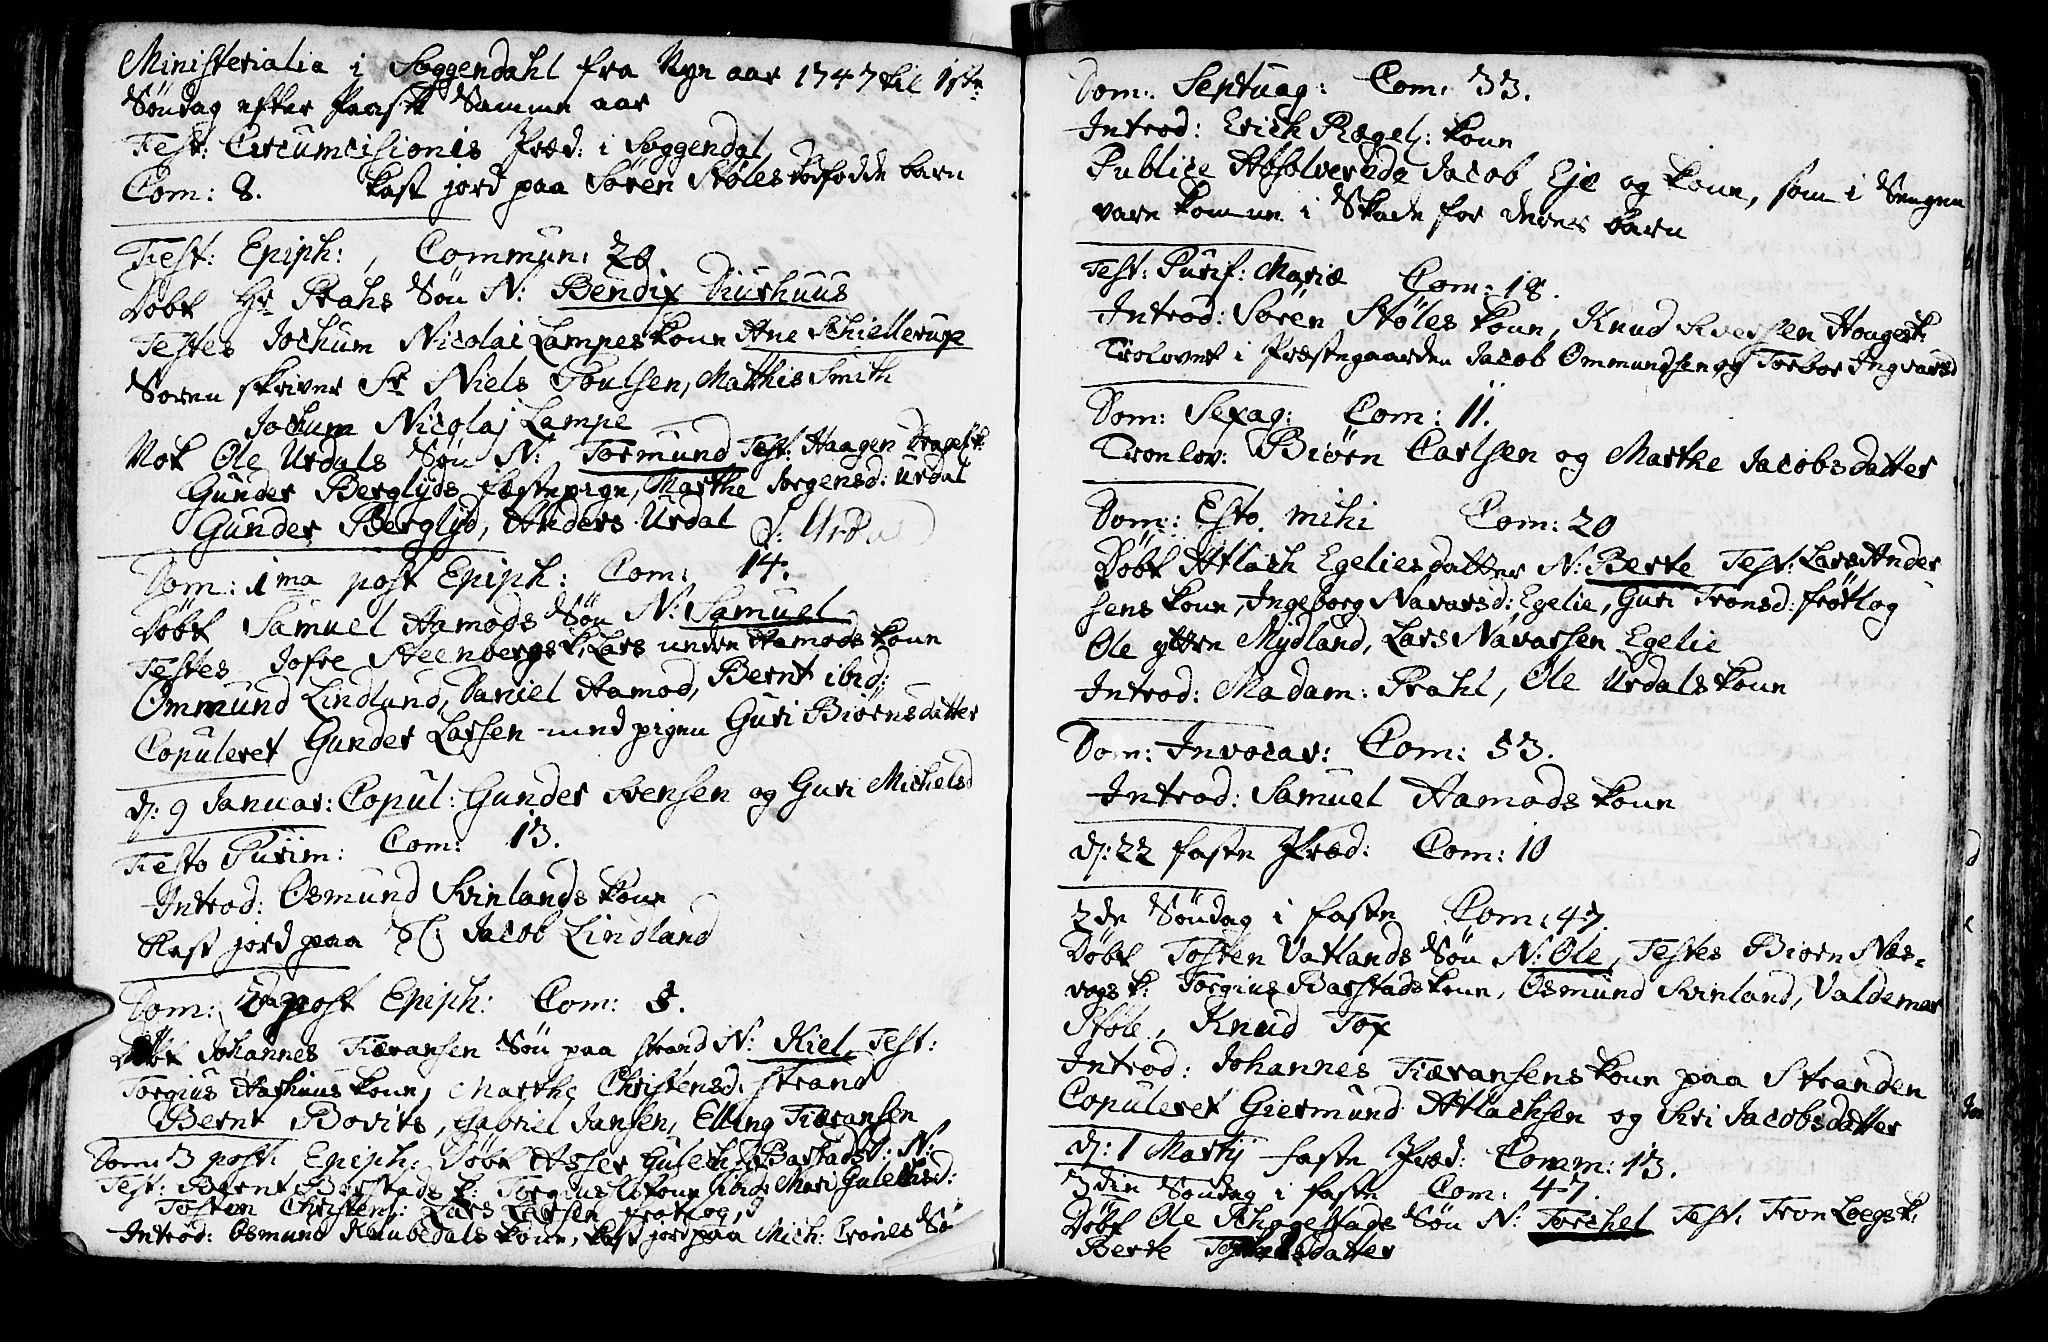 Ministerialia i Soggendahl fra Nyn aar 1747 til 1ste
Søndag efter Paaske Samme aar
Fest: Circumcisionis Præd: i Soggendal
Com: 8. Kast jord paa Søren Støles dødfødde barn
Fest: Epiph:, Commun: 20
Døbt Hr Prahs Søn N: Bendix Duurhuus
Testes Jochum Nicolai Lampes Kone Ane Schiellerup
Soren skriver Sr Niels Poulsen, Mathis Smith
Jochum Nicolaj Lampe
Nok Ole Urdals Søn N: Tormund Test: Haagen Drages k:
Gunder Berglyds festepige, Marthe Jorgensd: Urdal
Gunder Berglyd, Anders Urdal
Dom: 1ma post Epiph: Com: 14.
Døbt Samuel Aamods Søn N: Samuel
Testes Jofre Steenbergs k, Lars undre Aamods kone
Ommund Lindland, Daniel Aamod, Bernt ibid:
Copuleret Gunder Larsen med pigen Guri Biørnsdatter
d: 9 Januar: Copul: Gunder Svensen og Guri Michelsd
Festo Purim: Com: 13.
Introd: Osmund Svinlands kone
Kast jord paa Sl: Jacob Lindland
Dom: 2da post Epiph: Com: 8.
Døbt Johannes Tiæransen Søn paa strand N: Kiel, Test:
Torgius Aarhuus kone, Marthe Christensd: strand
Bernt Bovits, Gabriel Jansen, Elling Tiæransen
Dom: 3 post Epiph: Døbt Asser Gulech Barstads N:
Test: Bernt Barstads k: Torgius kone ibid: Mari Gulechsd:
Tosten Christens: Lars Larsen frøtlog,
Introd: Osmund Raubedals kone, Kast jord paa Mich: Crones Sø
Dom: Septuag: Com: 33.
Introd: Erich Rægel: kone
Publice Absolverede Jacob Eje og kone, som i Sengen
vare komne i Skade for deres barn
Fest: Purif: Mariæ Com: 18.
Introd: Søren Støles kone, Knud Sversen Houges k:
Trolovet i Præstegaarden Jacob Ommundsen og Torbor Ingvarsd
Dom: Sexag: Com: 11.
Tronlov: Biørn Carlsen og Marthe Jacobsdatter
Dom: Esto mihi Com: 20
Døbt Atlach Egelies datter N: Berte Test: Lars Ander
sens kone, Ingeborg Navarsd: Egelie, Guri Tronsd: frøtlog
Ole ytten Mydland, Lars Navarsen Egelie
Introd: Madam: Prahl, Ole Urdals kone
Dom: Invocav: Com: 53.
Introd: Samuel Aamods kone
d: 22 faste Præd: Com: 10
2de Søndag i faste Com: 47.
Døbt Tosten Vatlands Søn N: Ole, Testes Biørn Næs-
vogs k: Torgius Barstads kone, Osmund Svinland, Valdemar
Støle, Knud Tox
Introd: Johannes Tiæransens kone paa Stranden
Copuleret Giermund Atlachsen og Siri Jacobsdatter
d: 1 Martij faste Præd: Comm: 13.
3die Søndag i faste Com: 47.
Døbt Ole Schogestads Søn N: Torchel Test: Tron Loegs k: